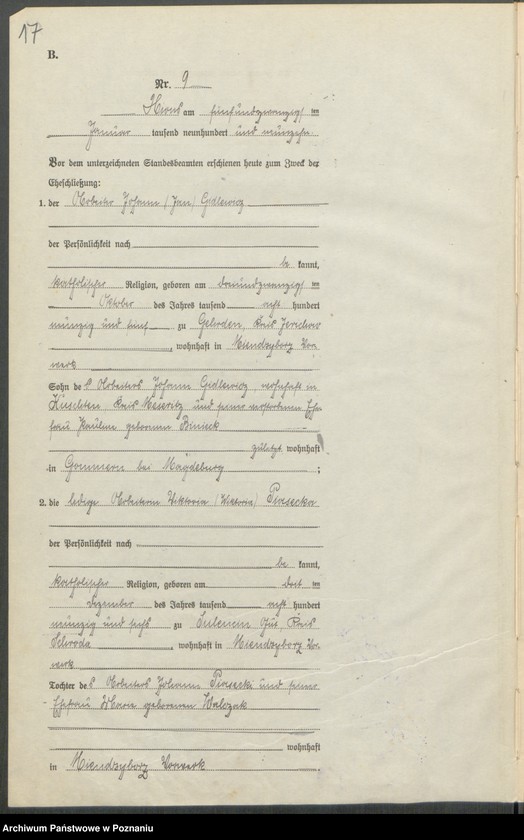 17
B.
Nr. 9
am fünfundzwanzig ten
Januar tausend neunhundert und neunzehn
Vor dem unterzeichneten Standesbeamten erschienen heute zum Zweck der
Eheschließung:
1. der Arbeiter Johann (Jan) Gidlewicz
der Persönlichkeit nach
be kannt,
katholischer Religion, geboren am dreiundzwanzig ten
Oktober des Jahres tausend acht hundert
neunzig und fünf zu Kreis
wohnhaft in Miendzyborz Vor
werk
Sohn des Arbeiters Johann Gidlewicz, wohnhaft in
Kuschten Kreis Meseritz und seiner verstorbenen Ehe
frau Pauline geborenen
zuletzt wohnhaft
in Gommern bei Magdeburg ;
2. die ledige Arbeiterin Viktoria (Wiktoria) Piasecka
der Persönlichkeit nach
be kannt,
katholischer Religion, geboren am ten
Dezember des Jahres tausend acht hundert
neunzig und sechs zu Sulencin Gut, Kreis
Schroda, wohnhaft in Miendzyborz Vor
werk
Tochter des Arbeiters Johann Piasecki und seiner
Ehefrau Marie geborenen Walczak
wohnhaft
in Miendzyborz Vorwerk.
Archiwum Państwowe w Poznaniu